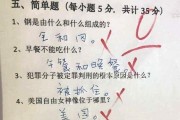 五、简单题(每小题5分,共计35分)
1、铜是由什么和什么组成的?
金和同。
2、早餐不能吃什么?
午餐和晚餐
3、犯罪分子被定罪判刑的根本原因是什么?
被抓住。
4、美国自由女神像位于哪里?
美国。